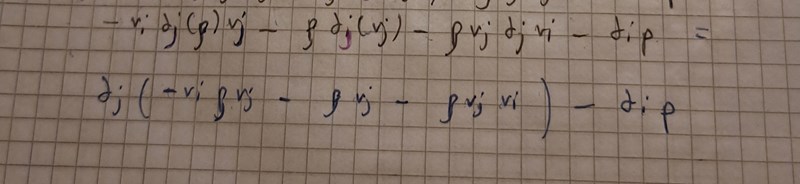 - vi ∂j(ρ)vj - ρ ∂j(vj) - ρ vj ∂j vi - ∂i p =
∂j ( - vi ρ vj - ρ vj - ρ vj vi ) - ∂i p